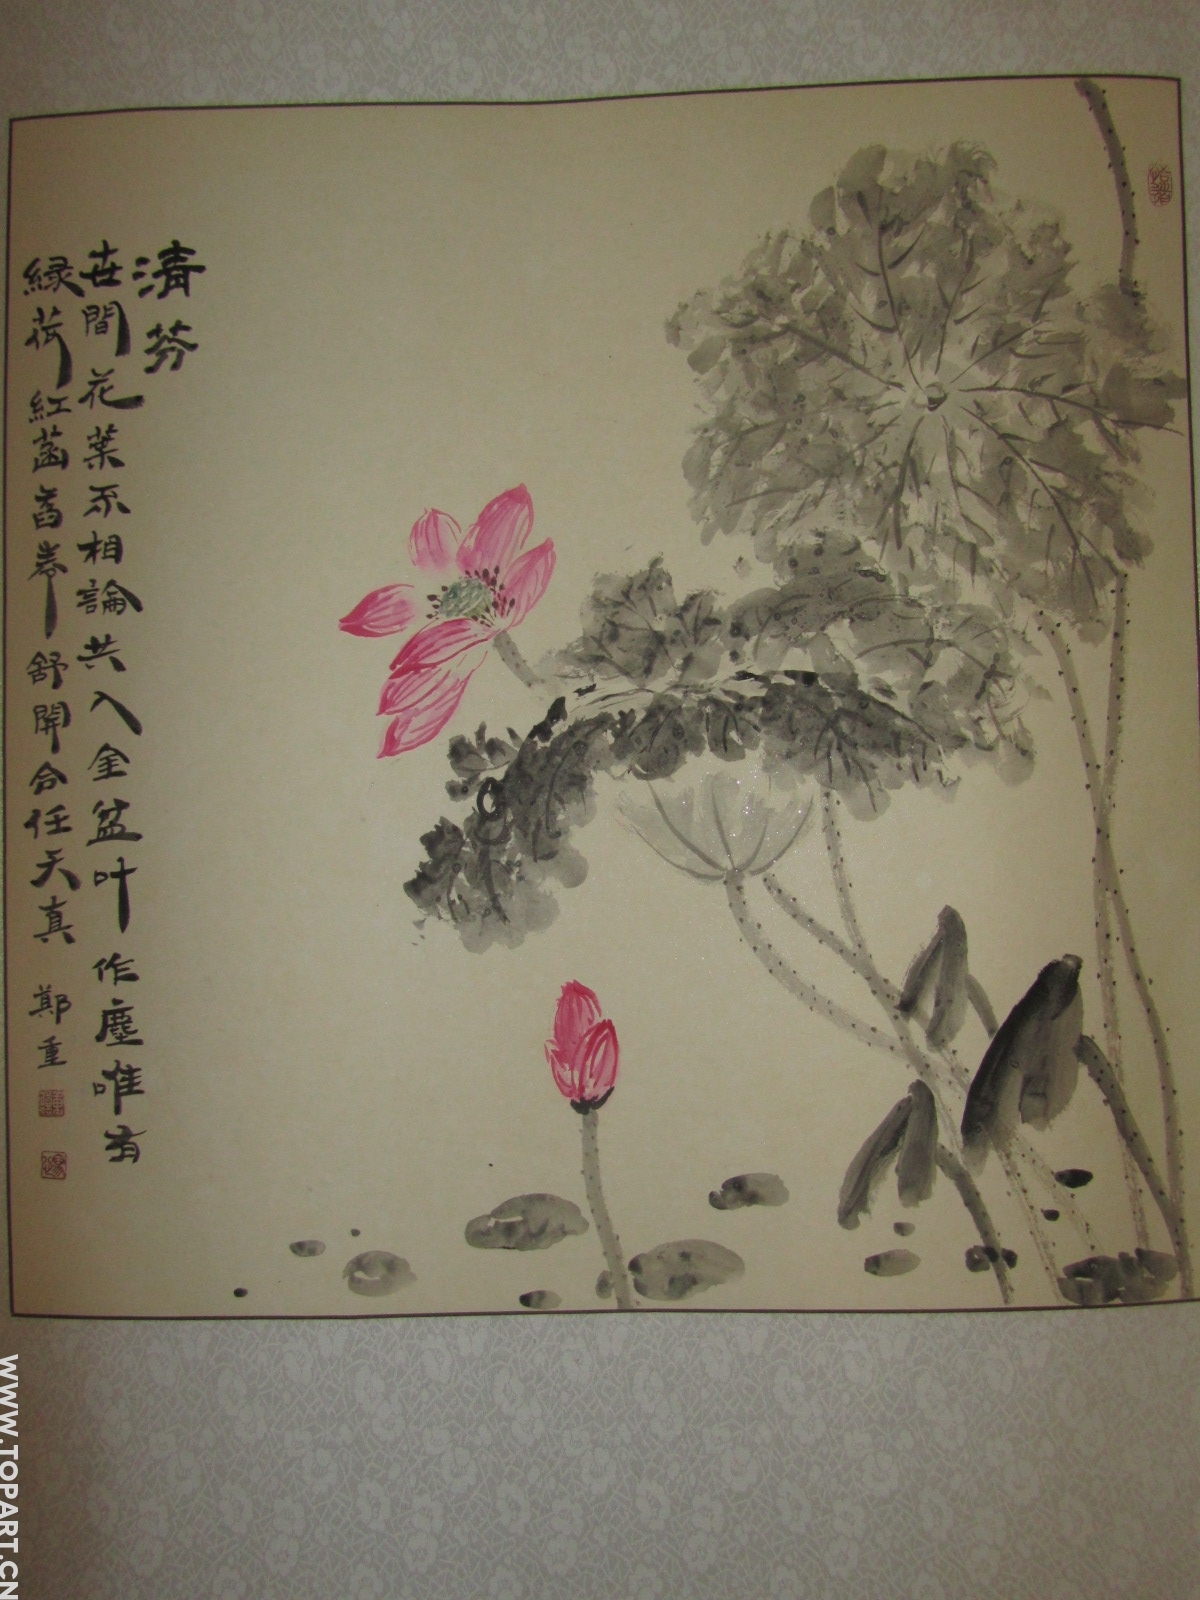 清芬
世間花葉不相論共入金盆叶作塵唯有
緑荷紅菡萏卷舒開合任天真 鄭重
WWW.TOPART.CN